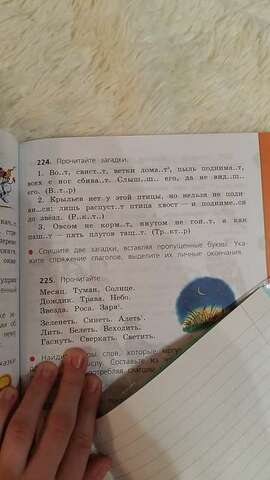 224. Прочитайте загадки.
1. Во..т, свист..т, ветки лома..т³, пыль поднима..т,
всех с ног сбива..т. Слыш..ш.. его, да не вид..ш..
его. (В..т..р)
2. Крыльев нет у этой птицы, но нельзя не поди-
ви..ся: лишь распуст..т птица хвост — и подниме..ся
до звёзд. (Р..к..т..)
3. Овсом не корм..т, кнутом не гон..т, а как
паш..т — пять плугов тащ..т. (Тр..кт..р)
Спишите две загадки, вставляя пропущенные буквы. Ука-
жите спряжение глаголов, выделите их личные окончания.
225. Прочитайте.
Месяц. Туман. Солнце.
Дождик. Трава. Небо.
Звезда. Роса. Заря¹.
Зеленеть. Синеть. Алеть¹.
Лить. Белеть. Всходить.
Гаснуть. Сверкать. Светить.
слов, которые